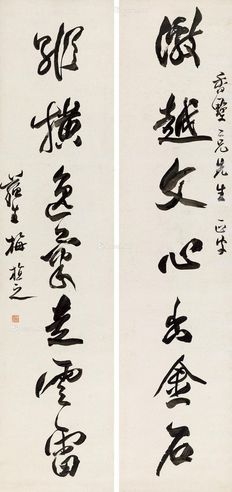 香 二兄先生 正字
激越文心出金石
縱橫逸氣走雲雷
蘊生梅植之